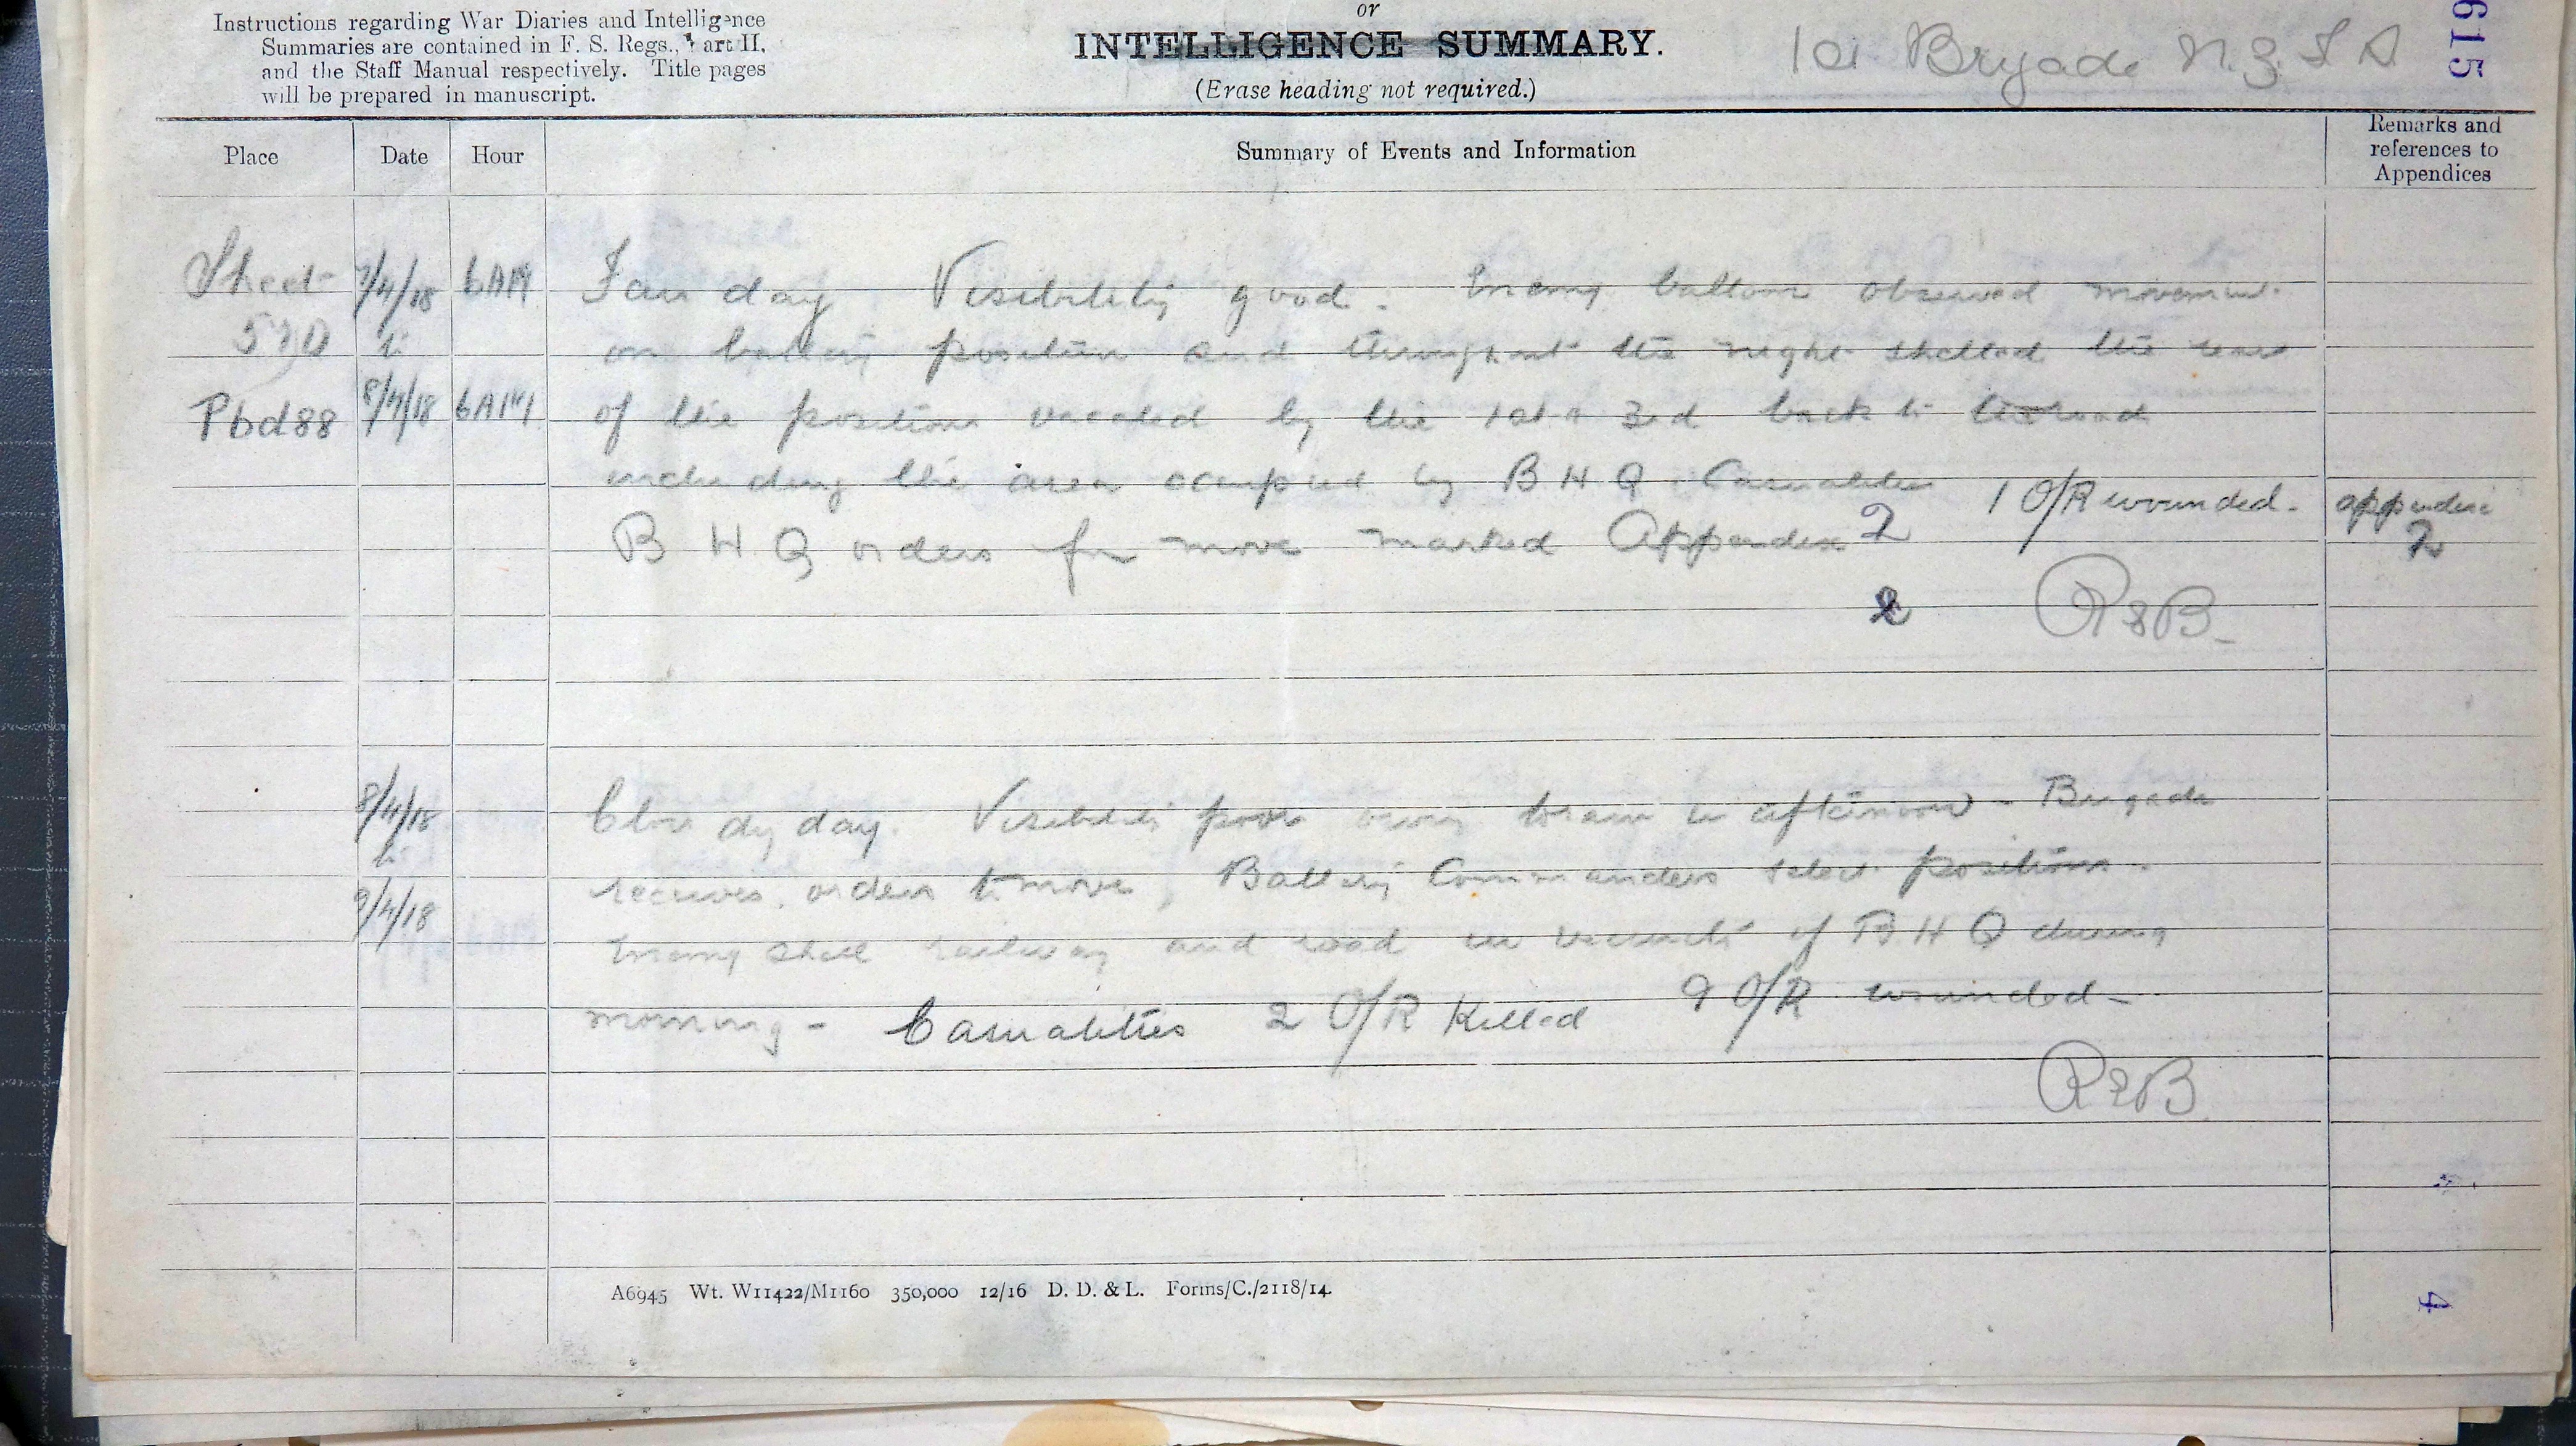 or
Instructions regarding War Diaries and Intelligence
Summaries are contained in F. S. Regs., Part II,
and the Staff Manual respectively. Title pages
will be prepared in manuscript.
INTELLIGENCE SUMMARY.
(Erase heading not required.)
1st Brigade N.Z.F.A
615
Place Date Hour Summary of Events and Information Remarks and references to Appendices
Sheet 7/4/18 6AM Fair day Visibility good. Enemy balloon observed movement
57D to on battery position and throughout the night shelled the rear
P6d88 8/4/18 6AM of the positions vacated by the 1st & 3rd back to road
including the area occupied by BHQ. Casualties 1 O/R wounded. appendix
BHQ orders for move marked Appendix 2 2
2
8/4/18 Cloudy day. Visibility poor in afternoon - Brigade
to receives orders to move, Battery Commanders select positions.
9/4/18 Enemy shell railway and road in vicinity of BHQ during
morning - Casualities 2 O/R Killed 9 O/R wounded -
A6945 Wt. W11422/M1160 350,000 12/16 D. D. & L. Forms/C./2118/14.
4